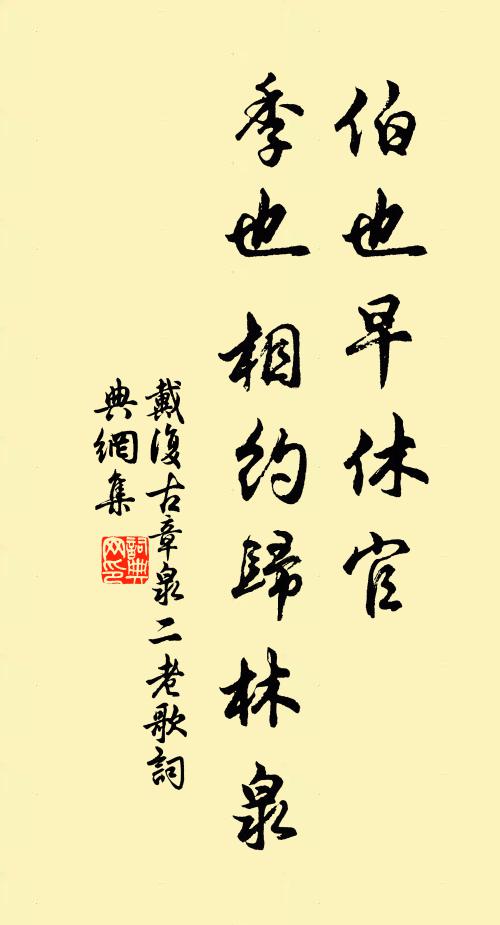 伯也早休官
季也相約歸林泉
戴復古章泉二老歌詞
典網集
詞典
网印